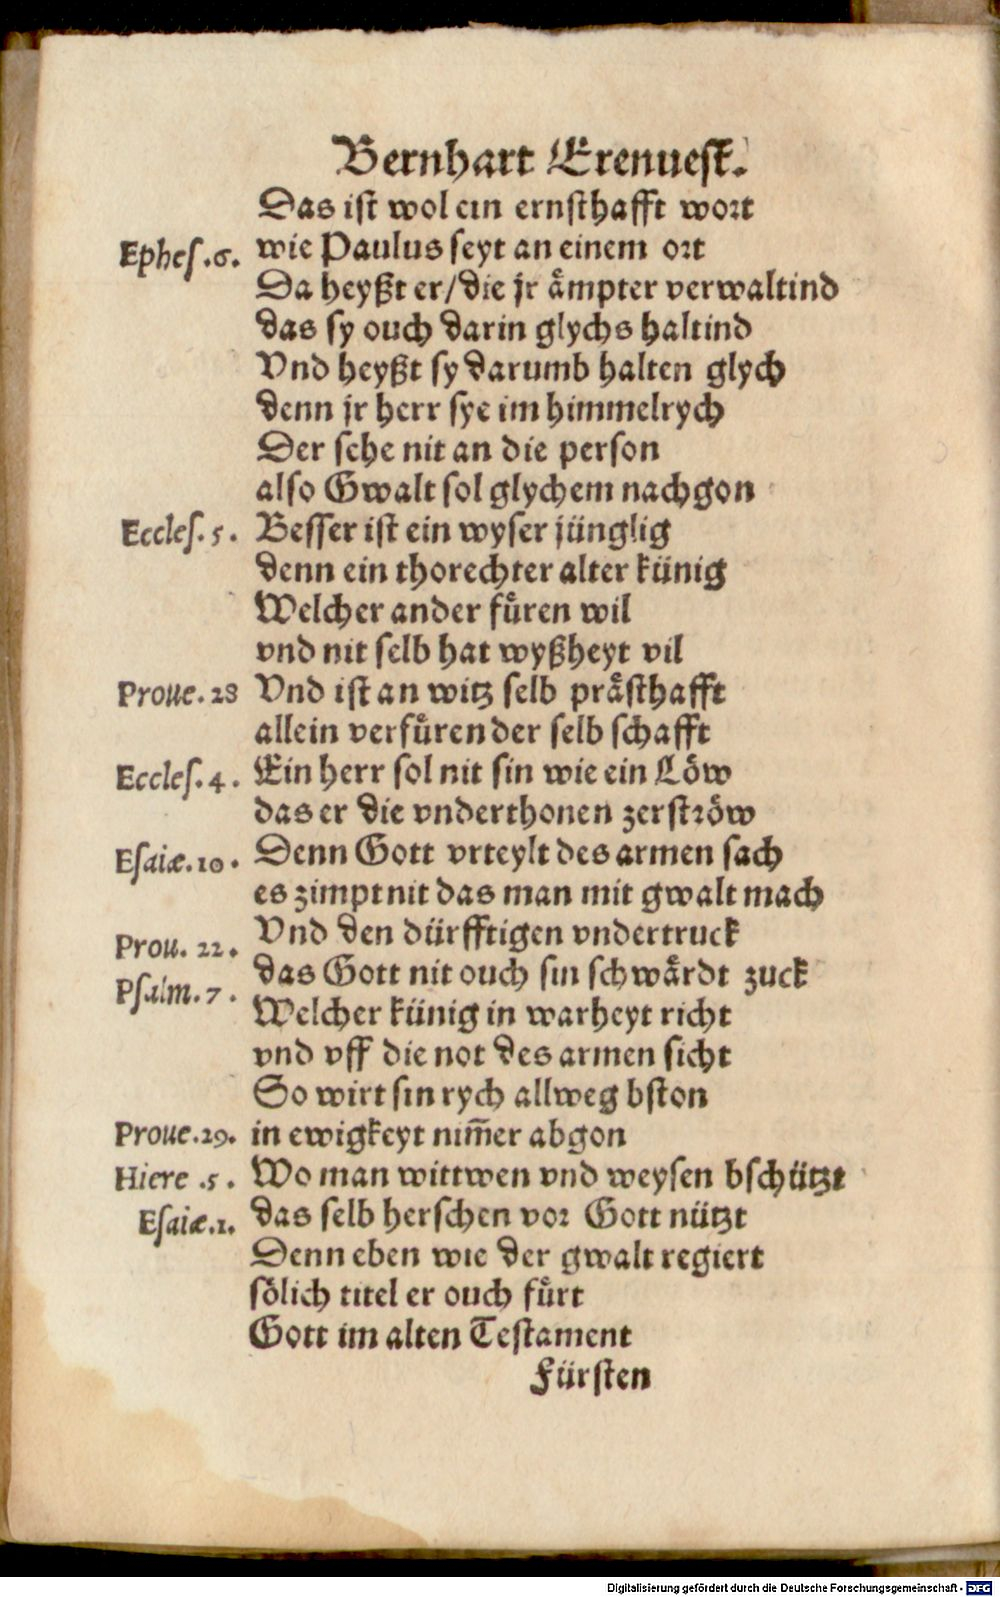 Bernhart Erenuest.
Das ist wol ein ernsthafft wort
Ephes.6. wie Paulus seyt an einem ort
Da heyßt er/die jr aͤmpter verwaltind
das sy ouch darin glychs haltind
Vnd heyßt sy darumb halten glych
denn jr herr sye im himmelrych
Der sehe nit an die person
also Gwalt sol glychem nachgon
Eccles.5. Besser ist ein wyser jünglig
denn ein thorechter alter künig
Welcher ander fuͤren wil
vnd nit selb hat wyßheyt vil
Proue.28 Vnd ist an witz selb praͤsthafft
allein verfuͤren der selb schafft
Eccles.4. Ein herr sol nit sin wie ein Loͤw
das er die vnderthonen zerstroͤw
Esaiæ.10. Denn Gott vrteylt des armen sach
es zimpt nit das man mit gwalt mach
Prou. 22. Vnd den dürfftigen vndertruck
Psalm.7. das Gott nit ouch sin schwaͤrdt zuck
Welcher künig in warheyt richt
vnd vff die not des armen sicht
So wirt sin rych allweg bston
Proue.29. in ewigkeyt nim̄er abgon
Hiere .5. Wo man wittwen vnd weysen bschützt
Esaiæ.1. das selb herschen vor Gott nützt
Denn eben wie der gwalt regiert
soͤlich titel er ouch fuͤrt
Gott im alten Testament
Fürsten
Digitalisierung gefördert durch die Deutsche Forschungsgemeinschaft - DFG